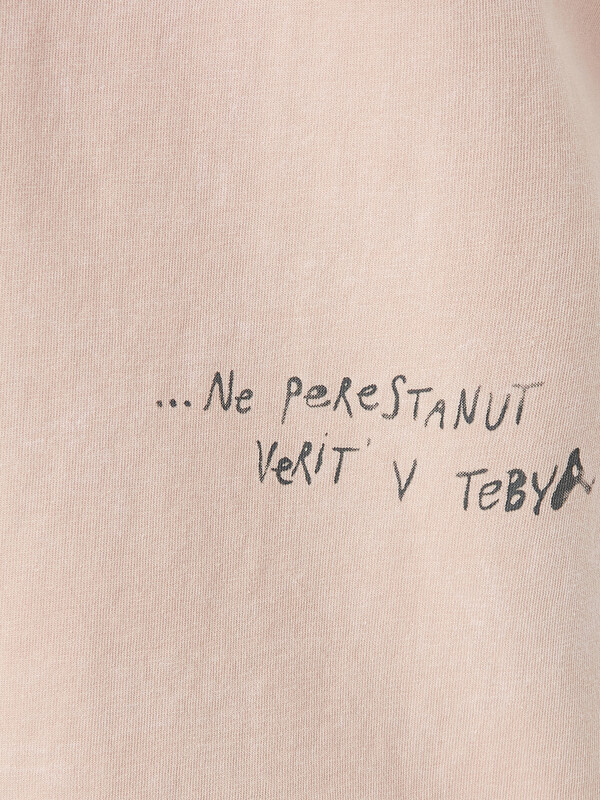 ...Ne PeReSTANUT
VeRIT' V TeBYA